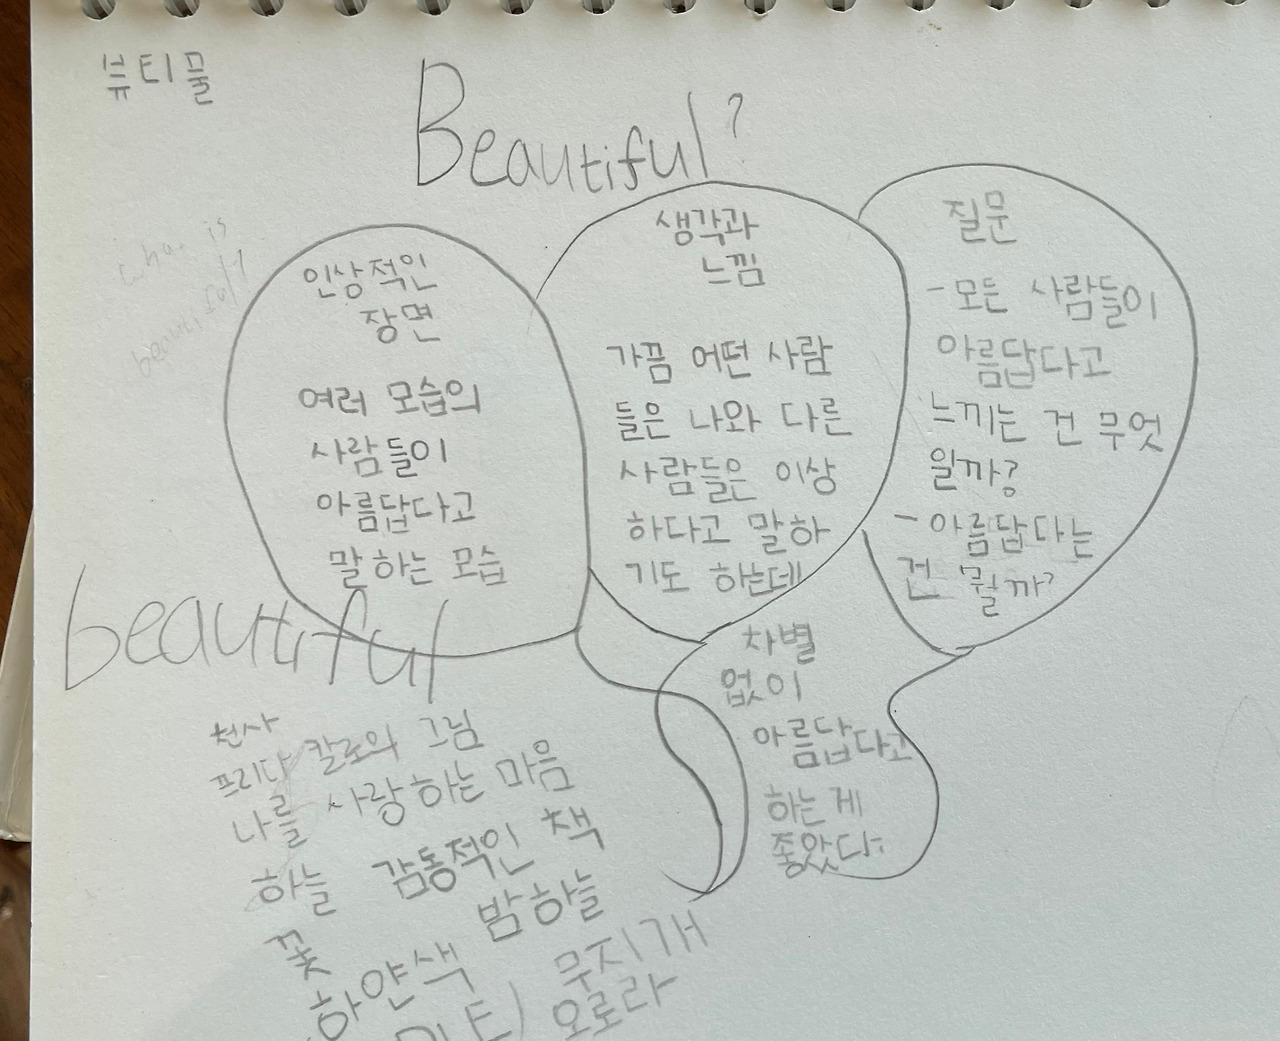 뷰티물
Beautiful?
what is
beautiful?
인상적인
장면
여러 모습의
사람들이
아름답다고
말하는 모습
생각과
느낌
가끔 어떤 사람
들은 나와 다른
사람들은 이상
하다고 말하
기도 하는데
차별
없이
아름답다고
하는게
좋았다.
질문
-모든 사람들이
아름답다고
느끼는 건 무엇
일까?
-아름답다는
건 뭘까?
beautiful
천사
프리다 칼로의 그림
나를 사랑하는 마음
하늘 감동적인 책
꽃 밤하늘
하얀색 무지개
오로라